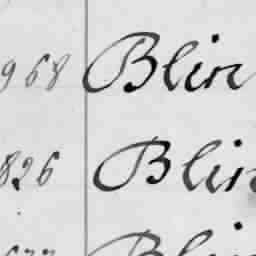 968 Blin
826 Blin